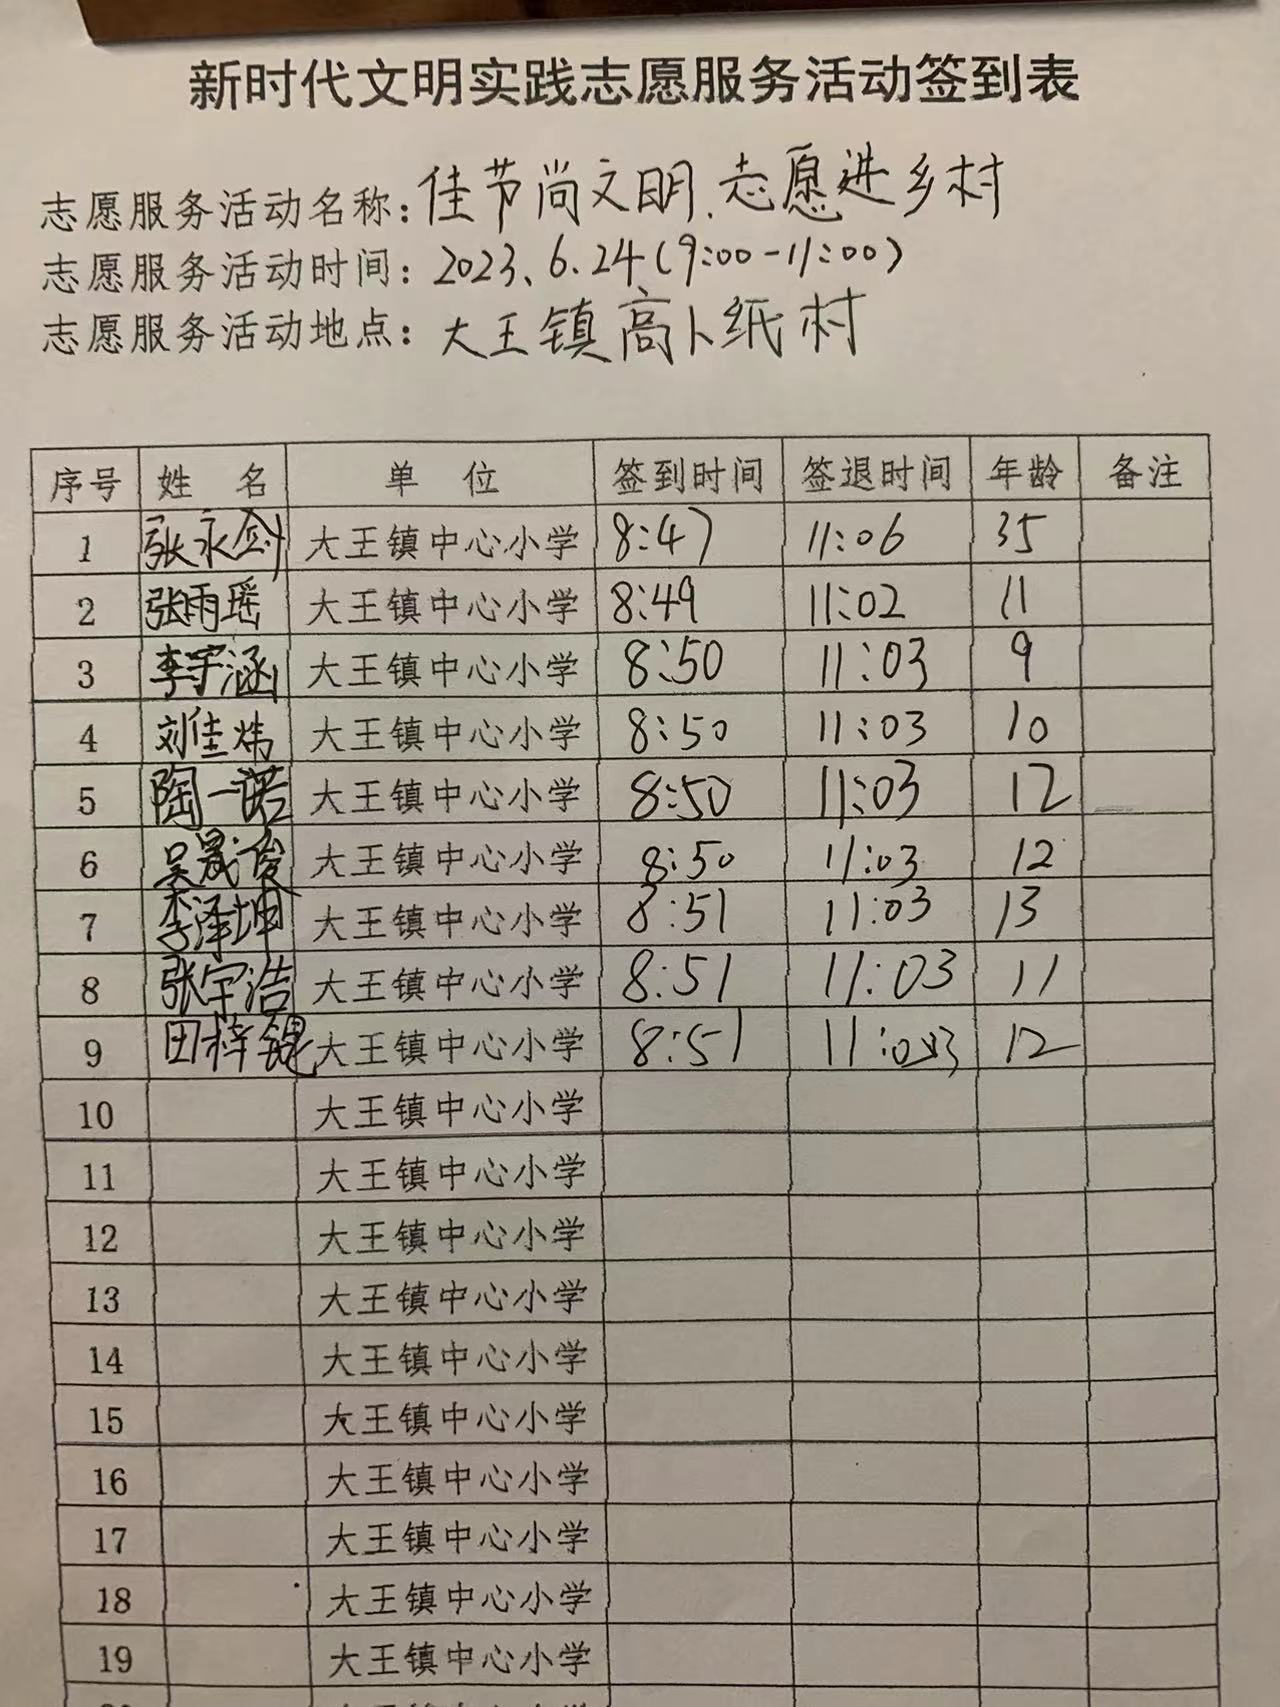 新时代文明实践志愿服务活动签到表
志愿服务活动名称：佳节尚文明、志愿进乡村
志愿服务活动时间：2023、6.24(9:00-11:00)
志愿服务活动地点：大王镇高卜纸村
序号 姓名 单位 签到时间 签退时间 年龄 备注
1 张永剑 大王镇中心小学 8:47 11:06 35
2 张雨瑶 大王镇中心小学 8:49 11:02 11
3 李宇涵 大王镇中心小学 8:50 11:03 9
4 刘佳炜 大王镇中心小学 8:50 11:03 10
5 陶一诺 大王镇中心小学 8:50 11:03 12
6 吴晟俊 大王镇中心小学 8:50 11:03 12
7 李泽坤 大王镇中心小学 8:51 11:03 13
8 张宇浩 大王镇中心小学 8:51 11:03 11
9 田梓锟 大王镇中心小学 8:51 11:03 12
10 大王镇中心小学
11 大王镇中心小学
12 大王镇中心小学
13 大王镇中心小学
14 大王镇中心小学
15 大王镇中心小学
16 大王镇中心小学
17 大王镇中心小学
18 大王镇中心小学
19 大王镇中心小学